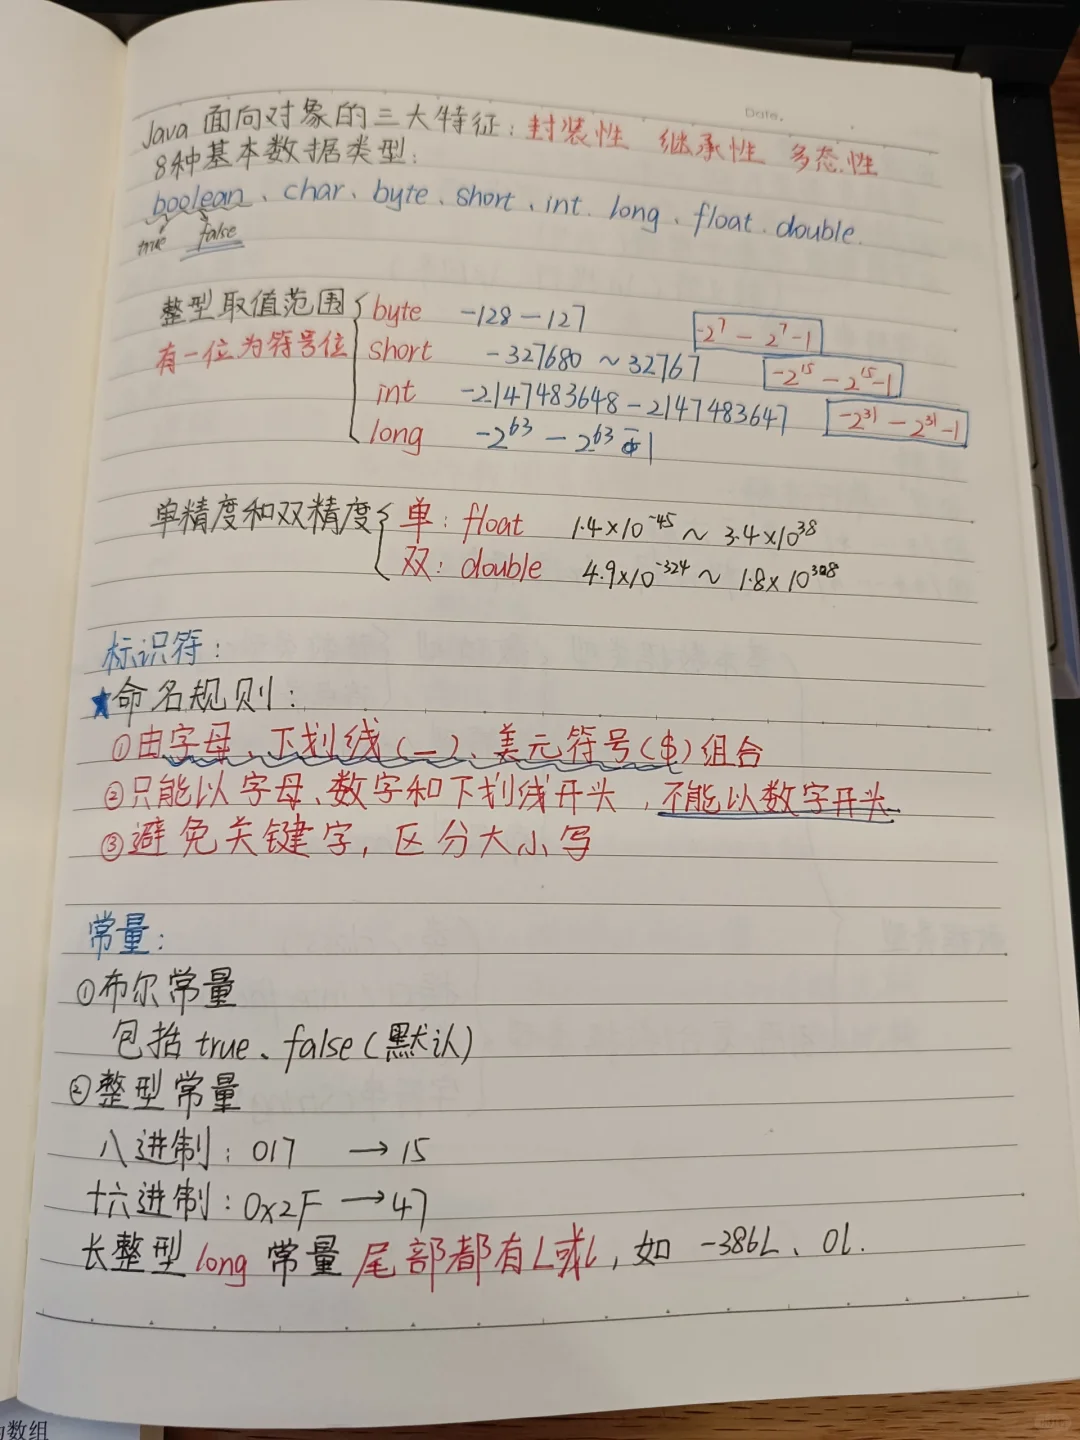 Date.
Java 面向对象的三大特征：封装性 继承性 多态性
8种基本数据类型：
boolean、char、byte、short、int、long、float、double.
true false
整型取值范围 byte -128—127 -2⁷ — 2⁷-1
有一位为符号位 short -327680 ~ 32767 -2¹⁵ — 2¹⁵-1
int -2147483648—2147483647 -2³¹ — 2³¹-1
long -2⁶³ — 2⁶³-1
单精度和双精度 单：float 1.4×10⁻⁴⁵ ~ 3.4×10³⁸
双：double 4.9×10⁻³²⁴ ~ 1.8×10³⁰⁸
标识符：
★命名规则：
①由字母、下划线(_)、美元符号($)组合
②只能以字母、数字和下划线开头，不能以数字开头
③避免关键字，区分大小写
常量：
①布尔常量
包括 true、false(默认)
②整型常量
八进制：017 → 15
十六进制：0x2F → 47
长整型 long 常量 尾部都有L或l，如 -386L、0l.
的数组